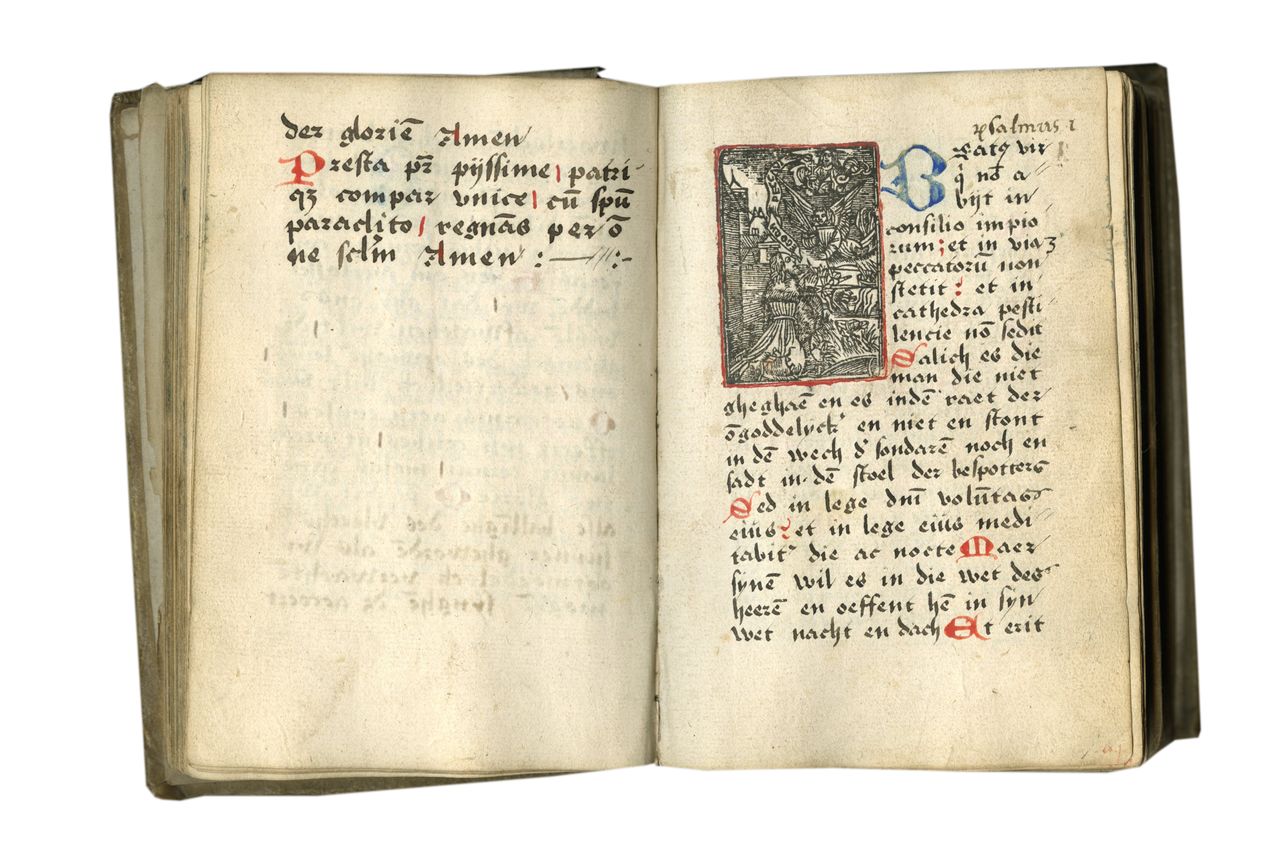 der gloriē Amen
Presta pr̄ pijssime patri
qȝ compar vnice cū spū
paraclito regnās per ō
ne sclm̄ Amen :
psalmus 1
Beatꝰ vir
q̄ nō a
bijt in
consilio impio
rum et in via
peccatorū non
stetit : et in
cathedra pesti
lencie nō sedit
Salich es die
man die niet
gheghaē en es indē raet der
ōgoddelyck' en niet en stont
in dē wech d' sondarē noch en
sadt in dē stoel der bespotters
Sed in lege dnī volūtas
eiūs : et in lege eiūs medi
tabit' die ac nocte Maer
synē wil es in die wet des
heerē en oeffent hē in syn
wet nacht en dach Et erit